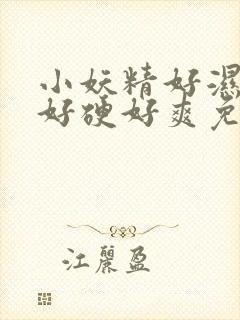 小妖精好濕
好硬好爽免
江麗盈